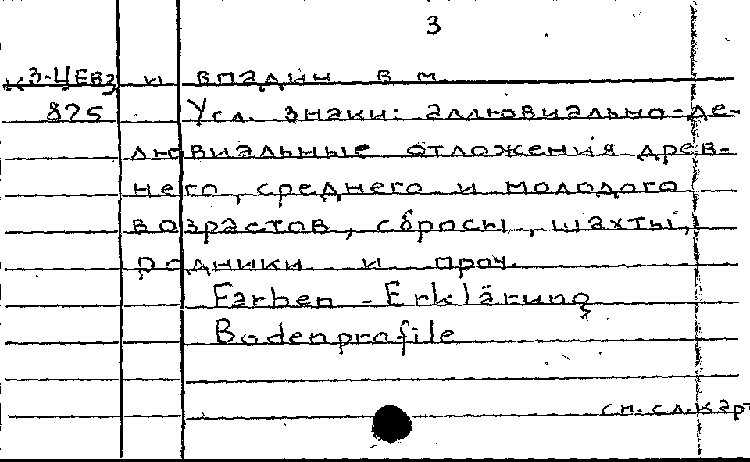 3
К3-ЦЕВ3 и впадин в м
875 Усл. знаки: аллювиально-де-
лювиальные отложения древ-
него, среднего и молодого
возрастов, сбросы, шахты,
родники и проч.
Farben - Erklärung
Bodenprofile
см. сл. карт